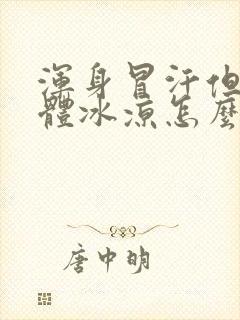 渾身冒汗但
體冰涼怎麼
唐中明